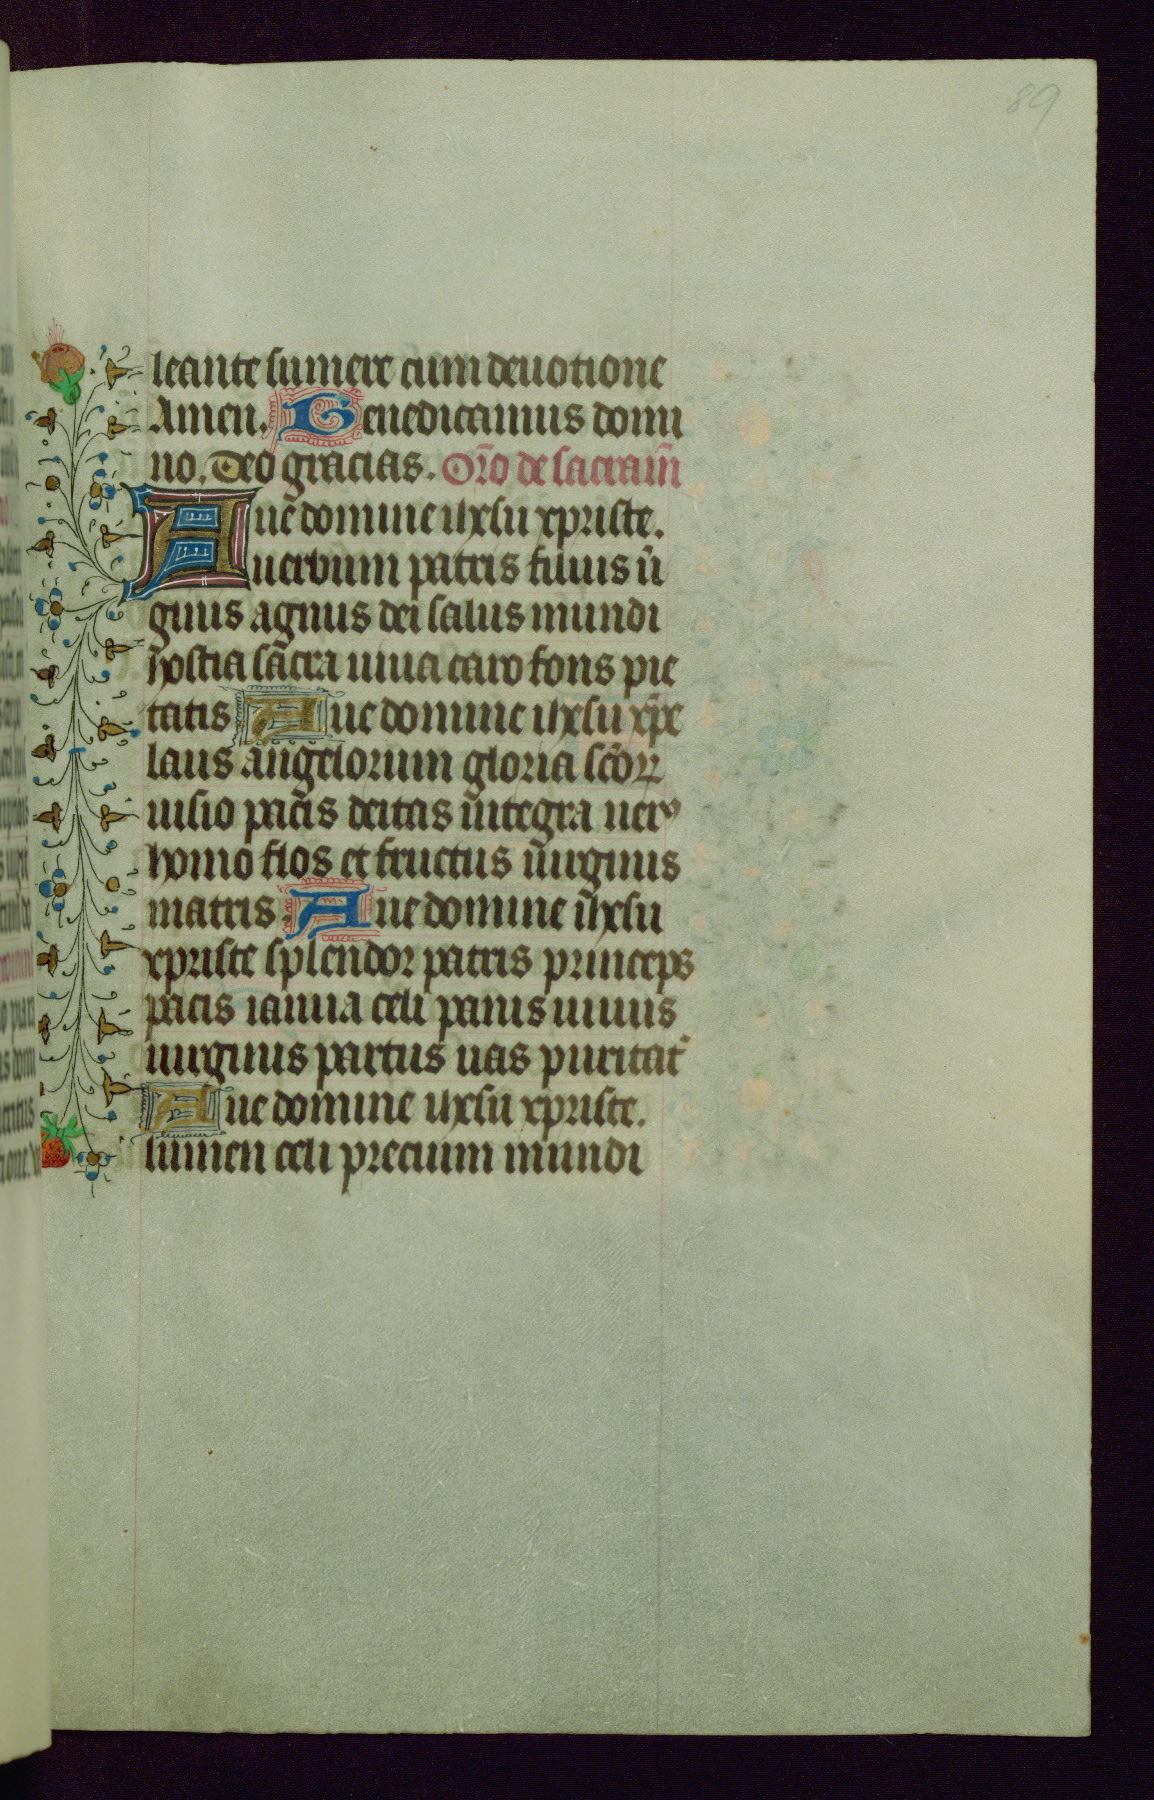 89
leante sumere cum deuotione
Amen. Benedicamus domi
no. Deo gracias. Or̄o de sacram̄
Aue domine ihesu xpriste.
uerbum patris filius ū
ginis agnus dei salus mundi
hostia sacra uiua caro fons pie
tatis Aue domine ihesu xp̄e
laus angelorum gloria sc̄oꝝ
uisio pacis deitas integra uerꝰ
homo flos et fructus uirginis
matris. Aue domine ihesu
xpriste splendor patris princeps
pacis ianua celi panis uiuus
uirginis partus uas puritat᷑
Aue domine ihesu xpriste.
lumen celi precium mundi